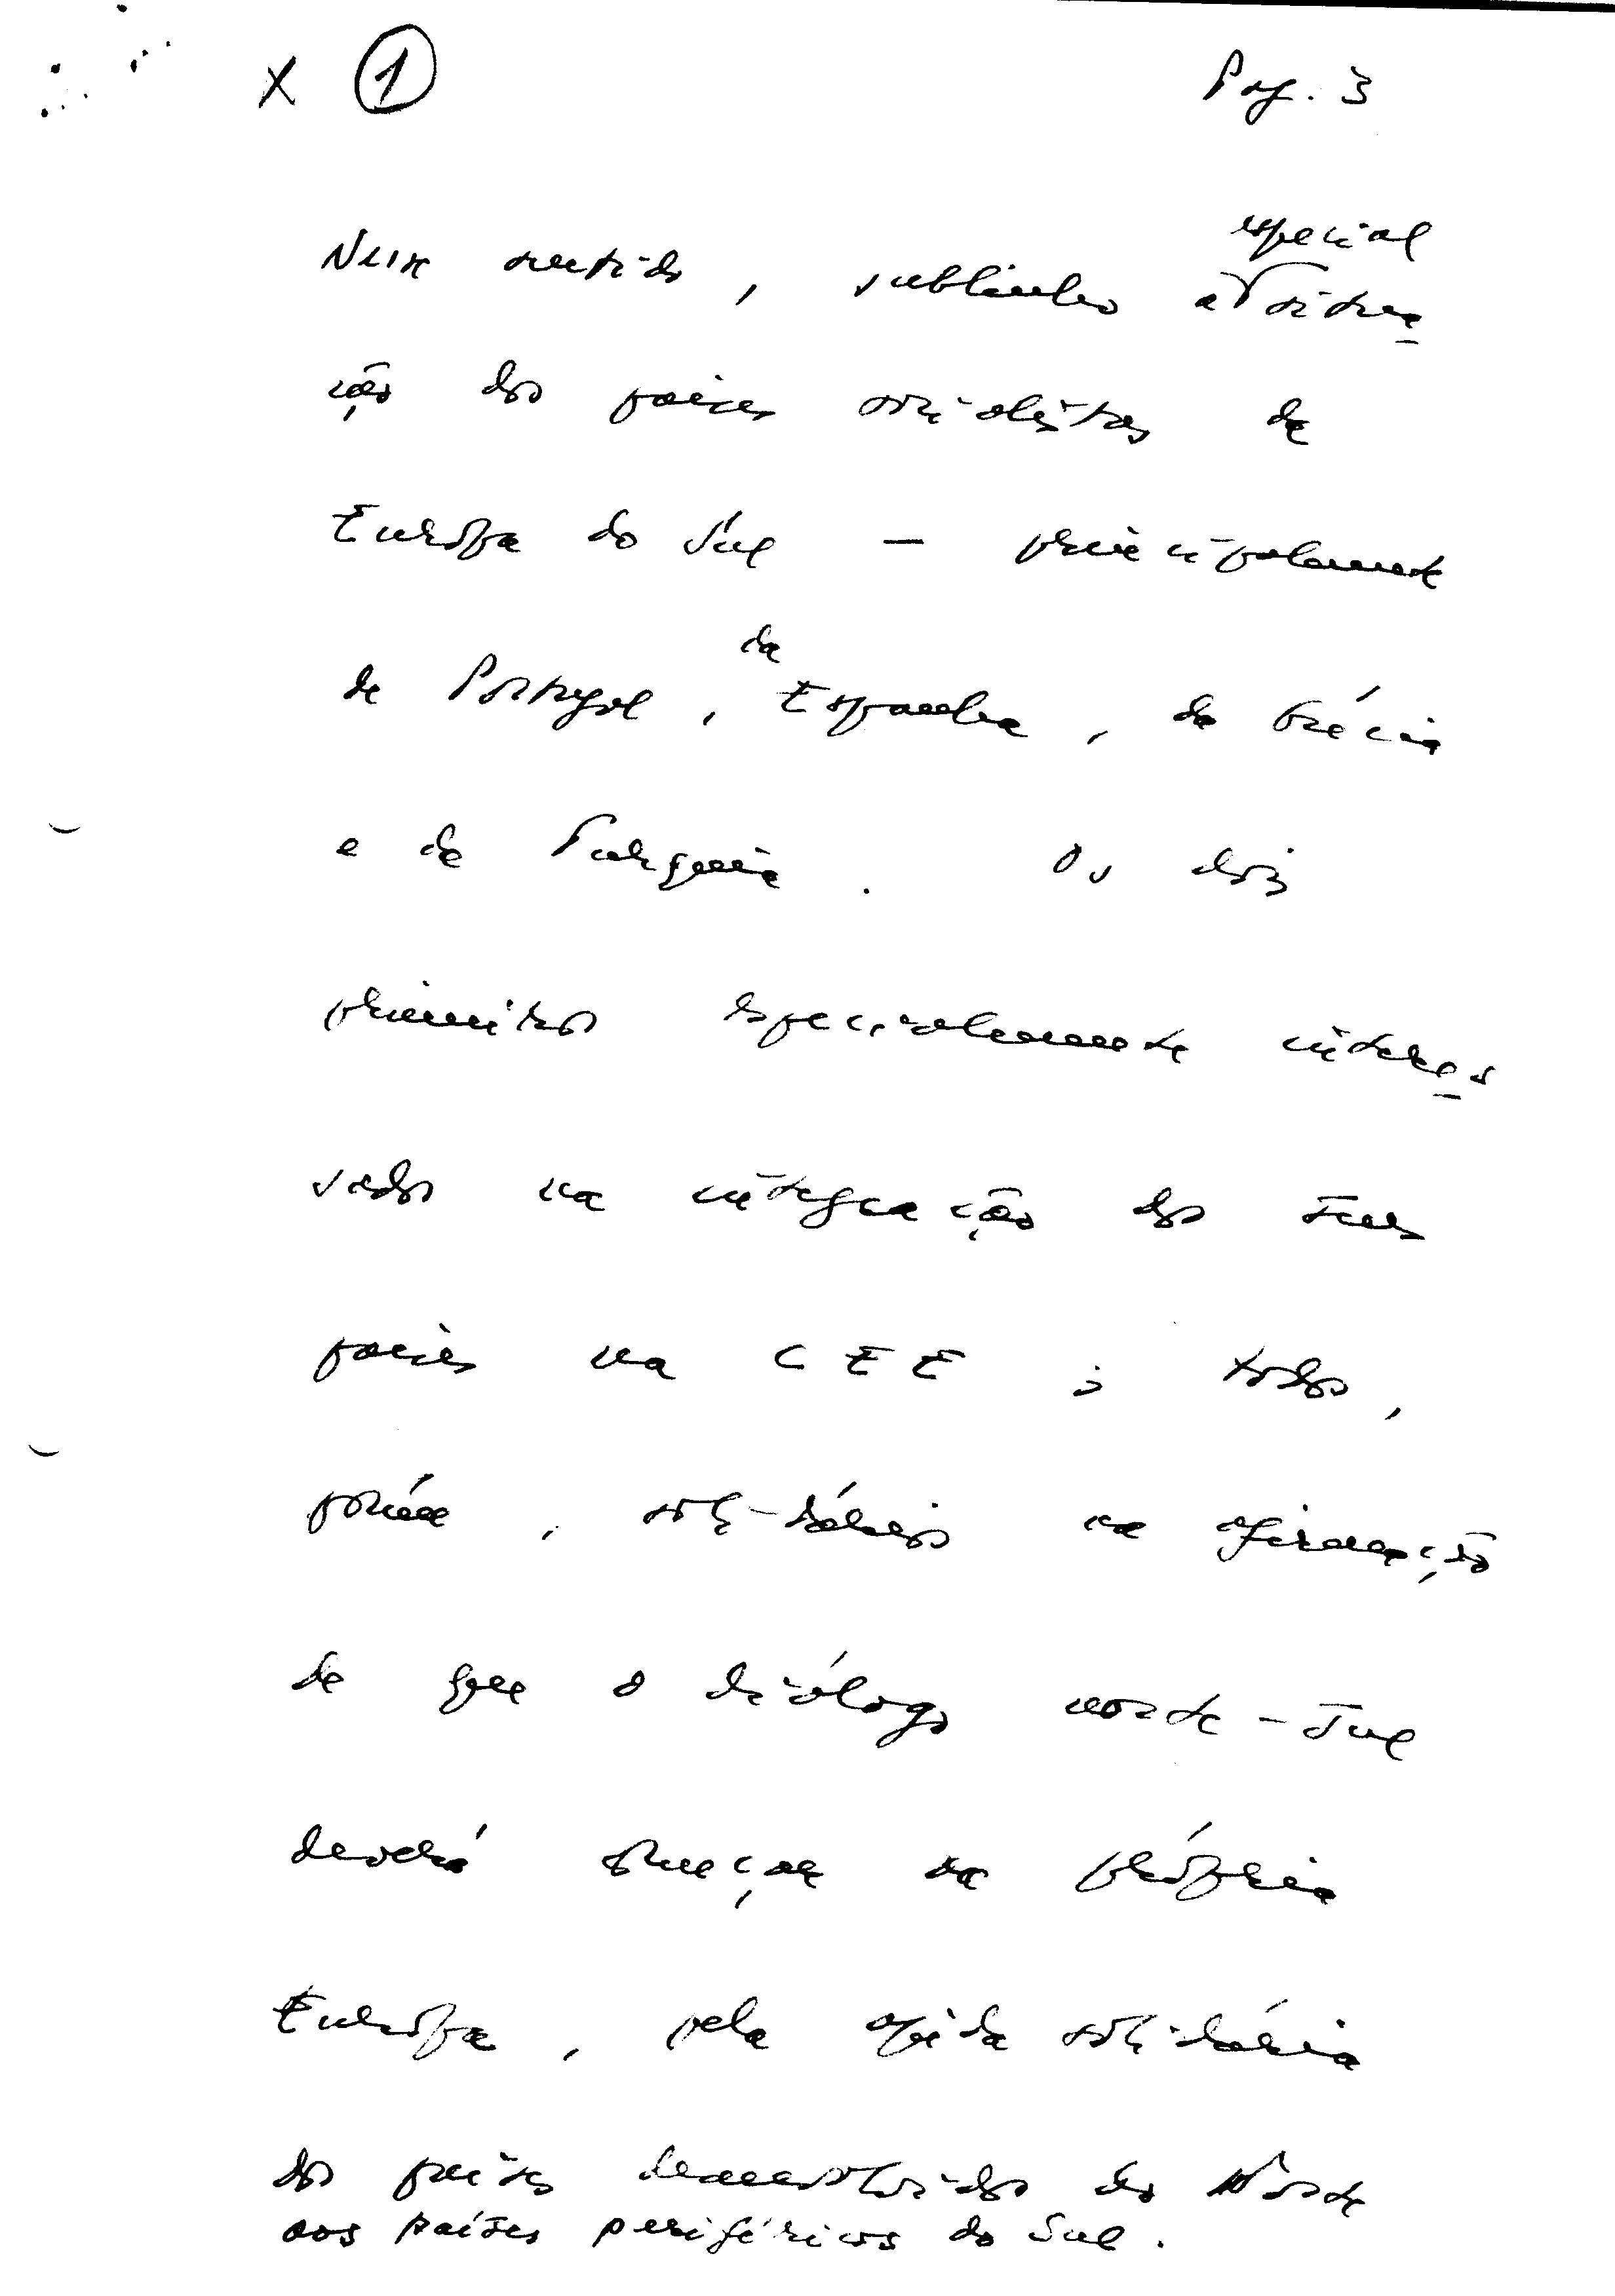 X 1 Pag. 3
especial
Nesse sentido, sublinho a situa
ção dos países socialistas da
Europa do Sul — principalmente
de Portugal, da Espanha, da Grécia
e da Turquia. Os dois
primeiros especialmente interes
sados na integração dos seus
países na CEE; todos,
porém, solidários na afirmação
de que o diálogo norte-Sul
deverá começar na própria
Europa, pela ajuda solidária
dos países desenvolvidos do Norte
aos países periféricos do Sul.